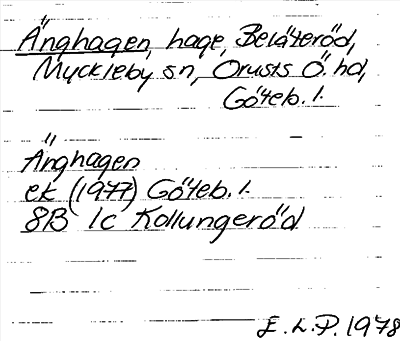 Änghagen, hage, Beläteröd,
Myckleby sn, Orusts Ö. hd,
Göteb. l.
Änghagen
ek (1977) Göteb. l.
8B 1c Kollungeröd
E. L. P. 1978